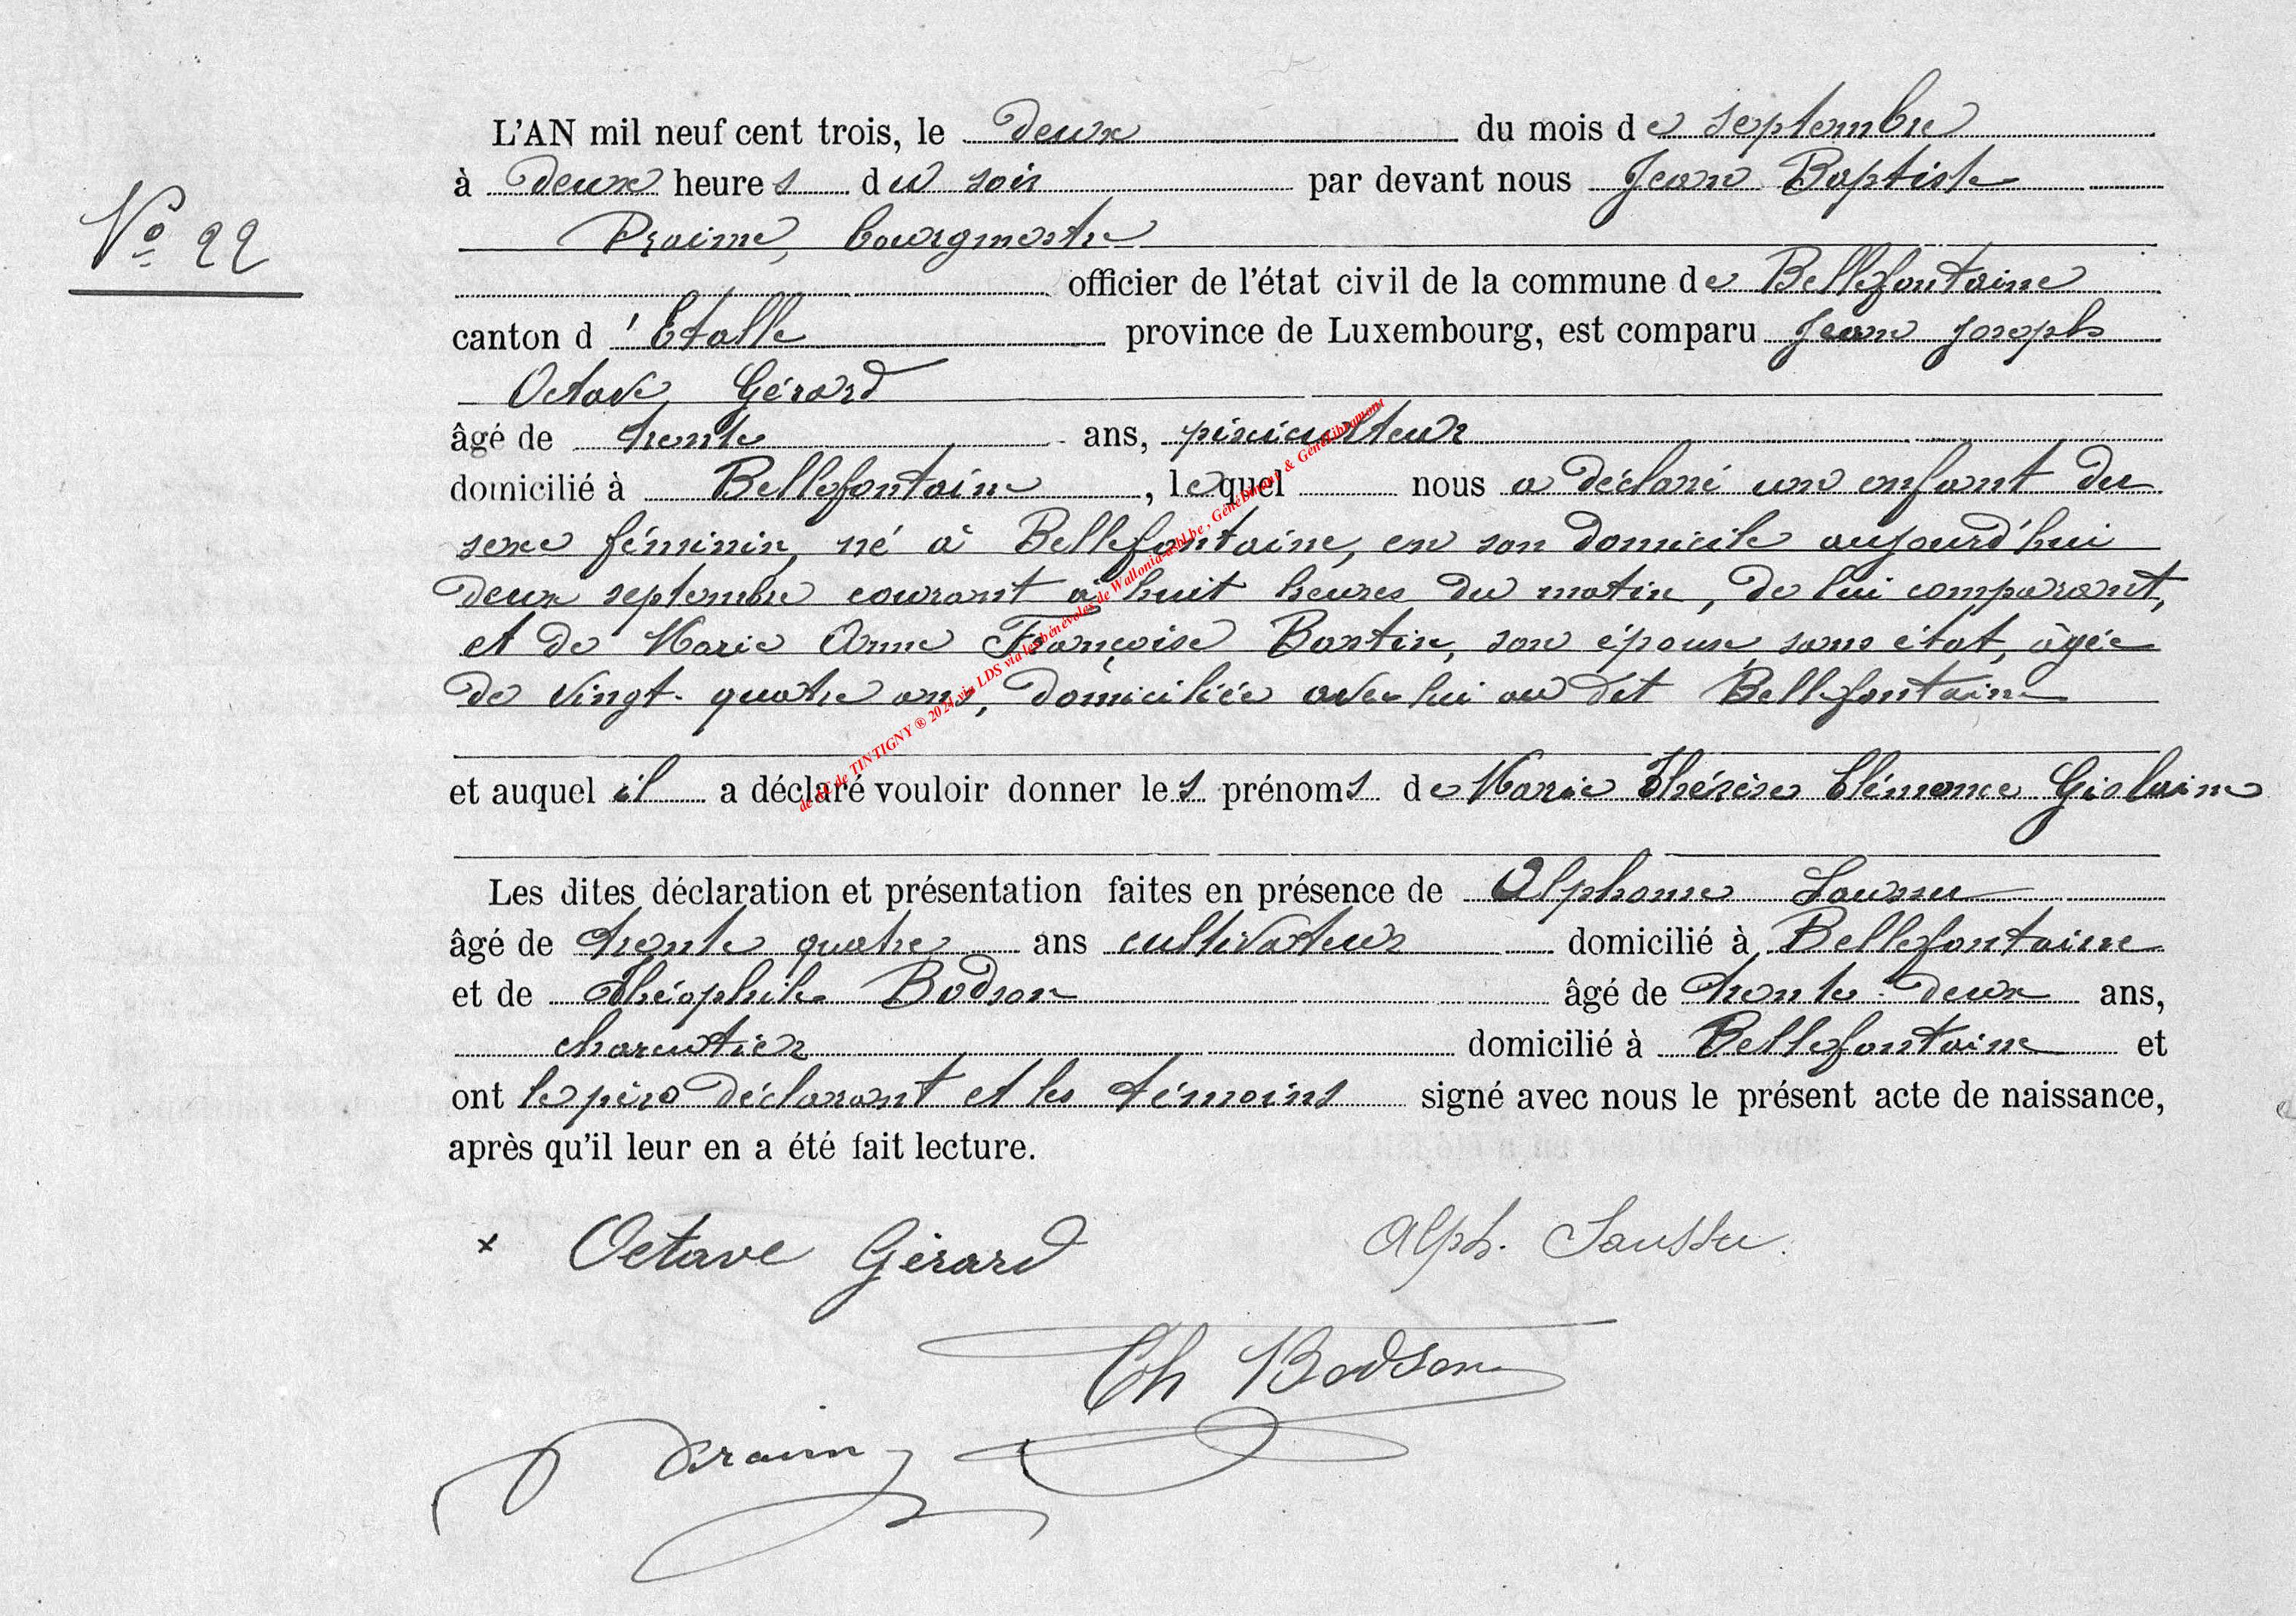 L'AN mil neuf cent trois, le deux du mois de septembre
à deux heures du soir par devant nous Jean Baptiste
Nº 22
Praime, bourgmestre
officier de l'état civil de la commune de Bellefontaine
canton d'Etalle province de Luxembourg, est comparu Jean Joseph
Octave Gérard
âgé de trente ans, pisciculteur
domicilié à Bellefontaine, lequel nous a déclaré un enfant du
sexe féminin, né à Bellefontaine, en son domicile aujourd'hui
deux septembre courant à huit heures du matin, de lui comparant,
et de Marie Anne Françoise Bastin, son épouse, sans état, âgée
de vingt-quatre ans, domiciliée avec lui au dit Bellefontaine
de EC de TINTIGNY ® 2024 via LDS via les bénévoles de Wallonia-asbl.be, GénéDinant & GénéLibramont
et auquel il a déclaré vouloir donner les prénoms de Marie Thérèse Clémence Gislaine
Les dites déclaration et présentation faites en présence de Alphonse Saussu
âgé de trente quatre ans cultivateur domicilié à Bellefontaine
et de Théophile Bodson âgé de trente-deux ans,
charcutier domicilié à Bellefontaine et
ont le père déclarant et les témoins signé avec nous le présent acte de naissance,
après qu'il leur en a été fait lecture.
x Octave Gérard Alph. Saussu.
Th Bodson
Praime